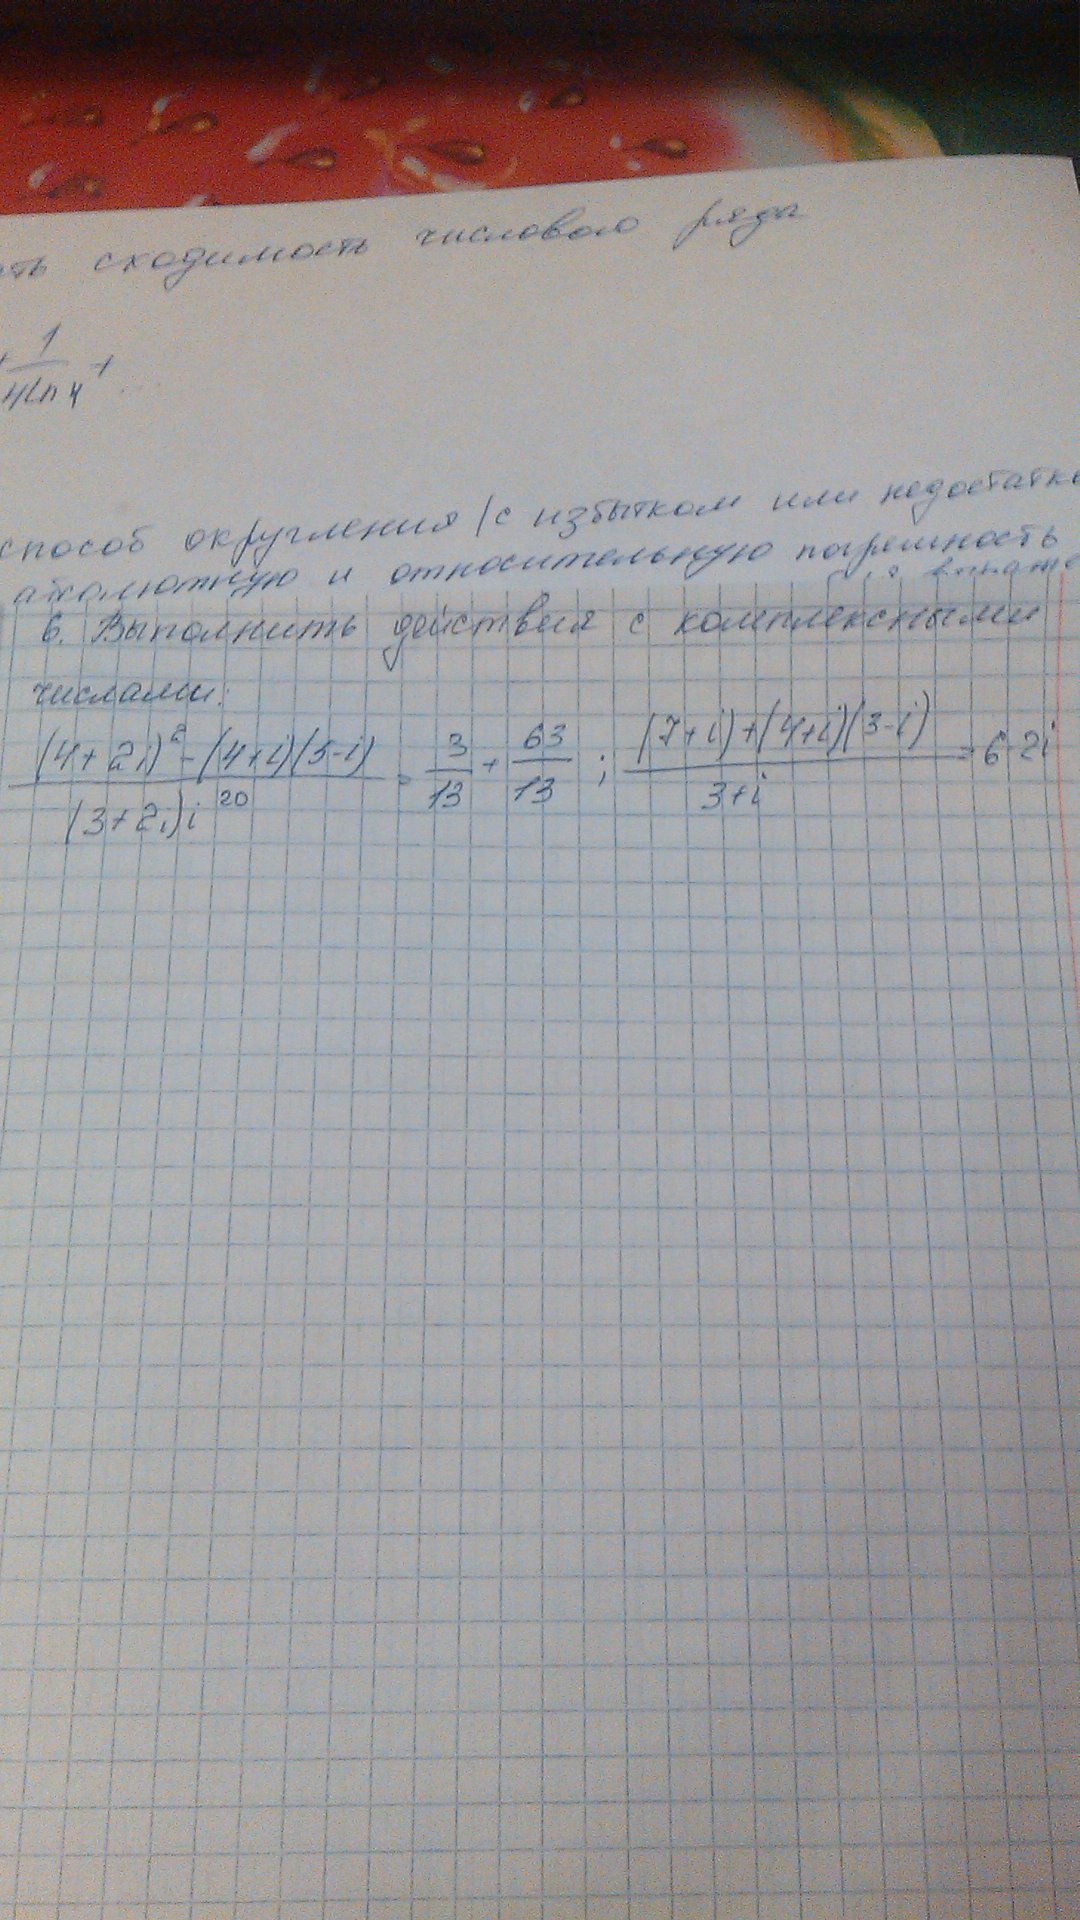 сходимость числового ряда
+ 1/(4ln4) + ...
способ округления (с избытком или недостатко
абсолютную и относительную погрешность
6. Выполнить действия с комплексными
числами:
((4+2i)² - (4+i)(5-i)) / ((3+2i)i²⁰) = 3/13 + 63/13 ; ((7+i)+(4+i)(3-i)) / (3+i) = 6-2i